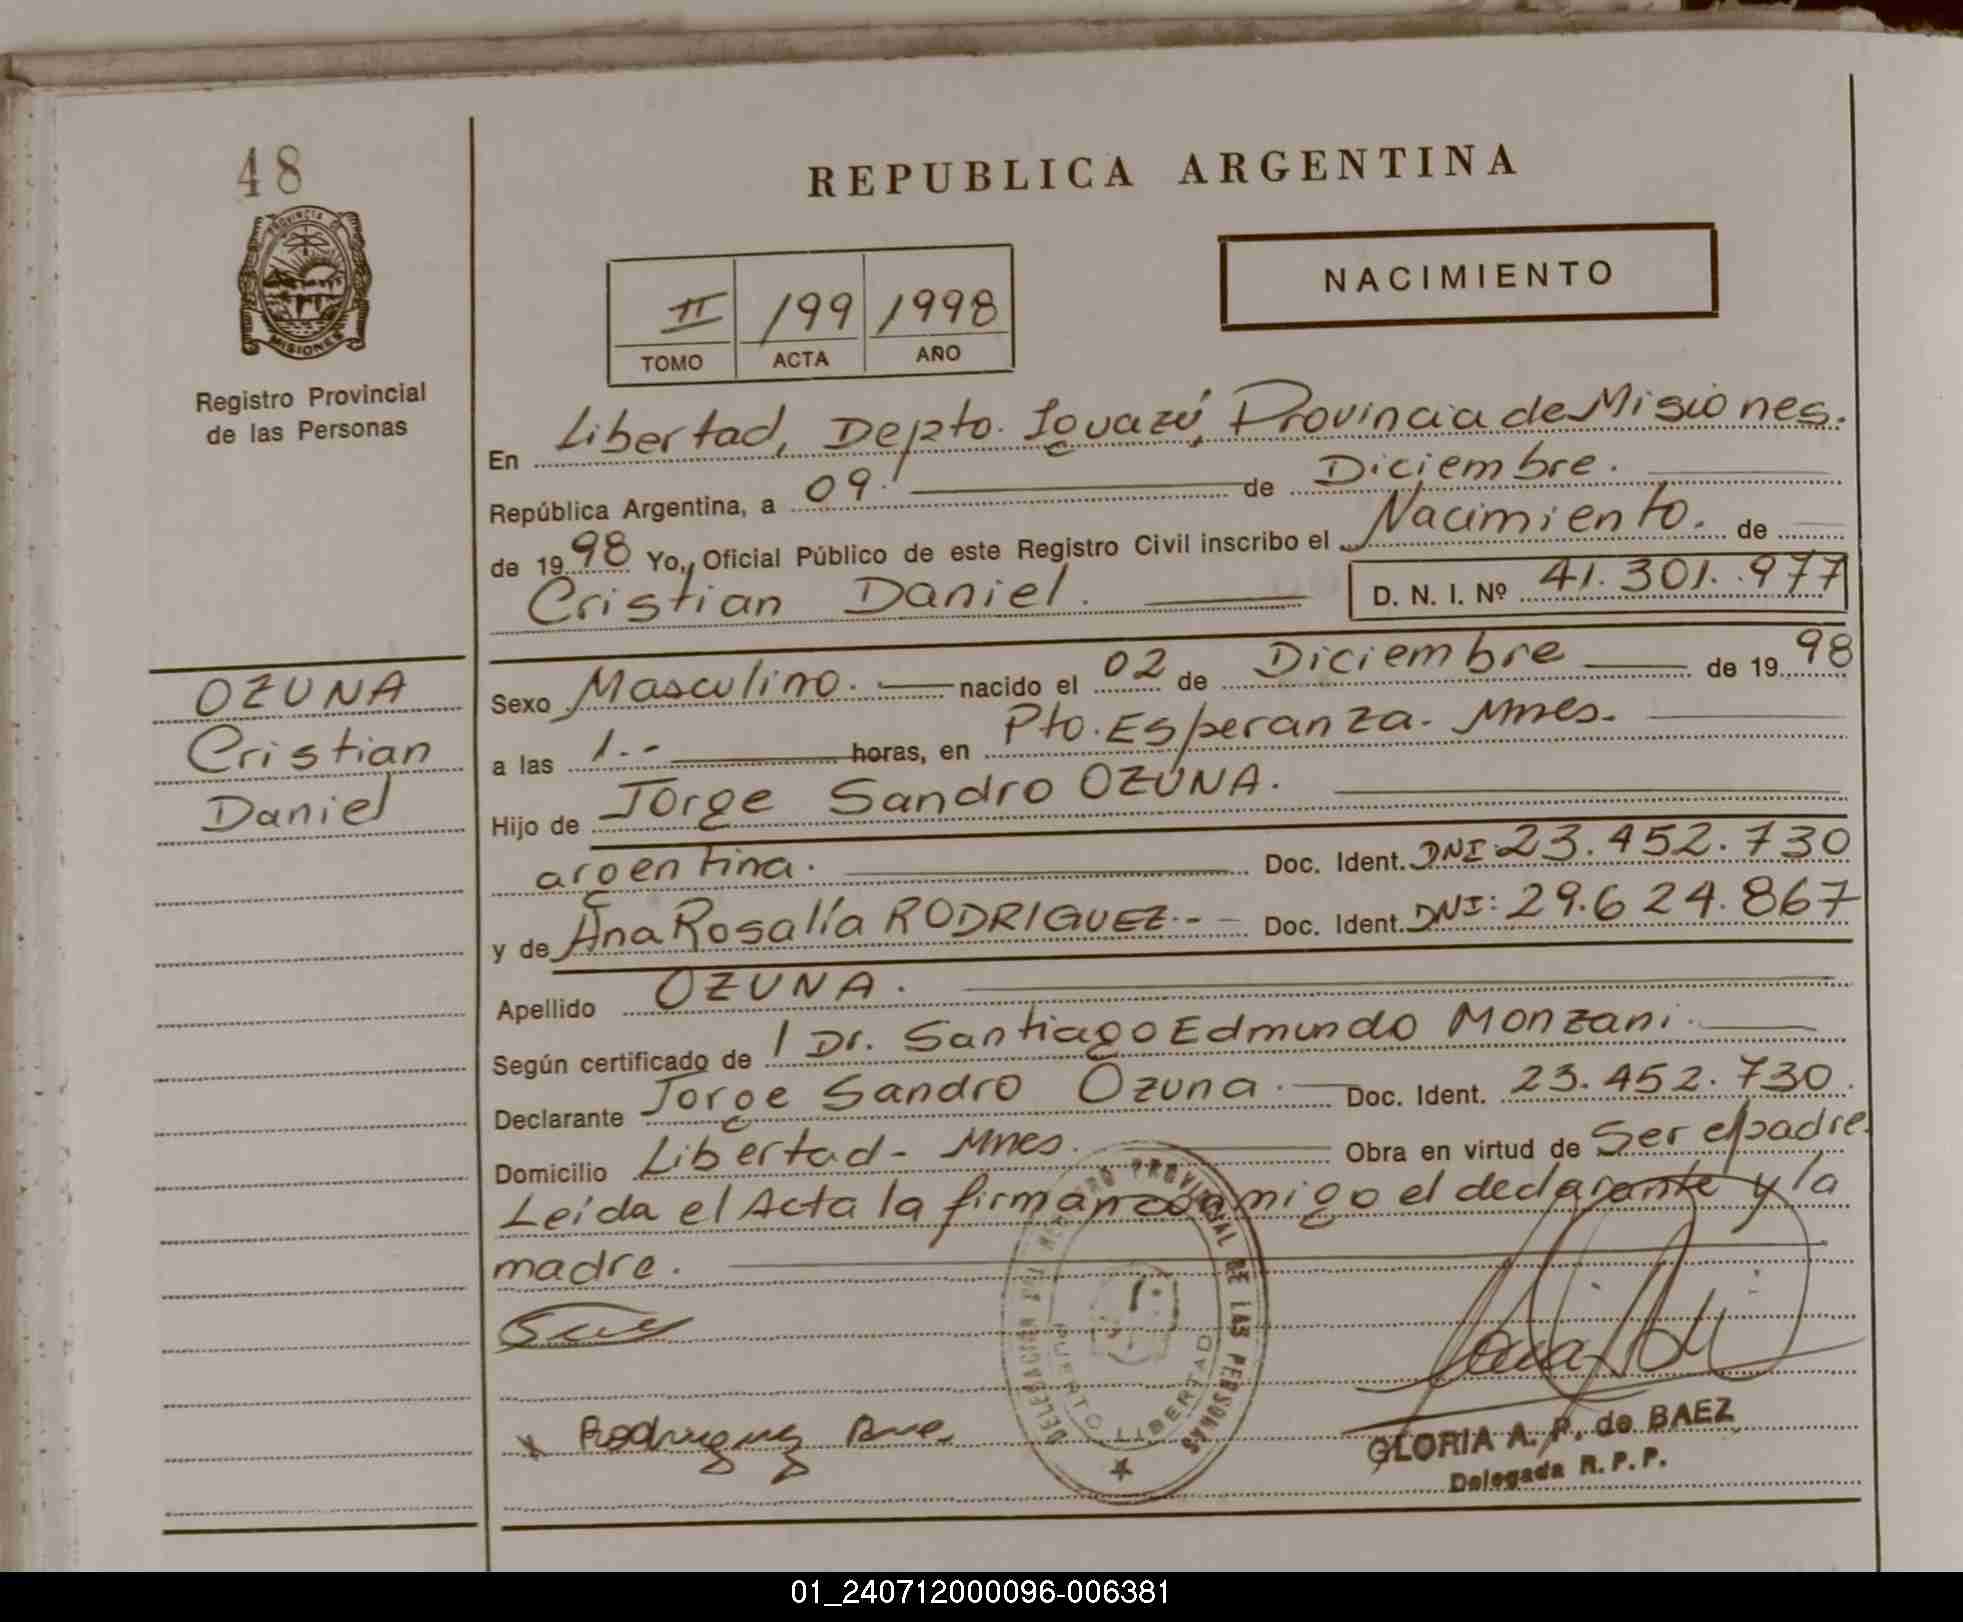 48
PROVINCIA DE
MISIONES
Registro Provincial
de las Personas
OZUNA
Cristian
Daniel
REPUBLICA ARGENTINA
NACIMIENTO
II 199 1998
TOMO ACTA AÑO
En Libertad, Depto. Iguazú, Provincia de Misiones.
República Argentina, a 09. de Diciembre.
de 1998 Yo, Oficial Público de este Registro Civil inscribo el Nacimiento. de
Cristian Daniel. D. N. I. Nº 41.301.977
Sexo Masculino. nacido el 02 de Diciembre de 1998
a las 1.- horas, en Pto. Esperanza. Mnes.
Hijo de Jorge Sandro OZUNA.
argentina. Doc. Ident. DNI: 23.452.730
y de Ana Rosalía RODRIGUEZ.- Doc. Ident. DNI: 29.624.867
Apellido OZUNA.
Según certificado de / Dr. Santiago Edmundo Monzani.
Declarante Jorge Sandro Ozuna. Doc. Ident. 23.452.730.
Domicilio Libertad - Mnes. Obra en virtud de Ser el padre.
Leída el Acta la firman conmigo el declarante y la
madre.
REGISTRO PROVINCIAL DE LAS PERSONAS
PUERTO LIBERTAD
x Rodriguez Ana
GLORIA A. P. de BAEZ
Delegada R. P. P.
01_240712000096-006381